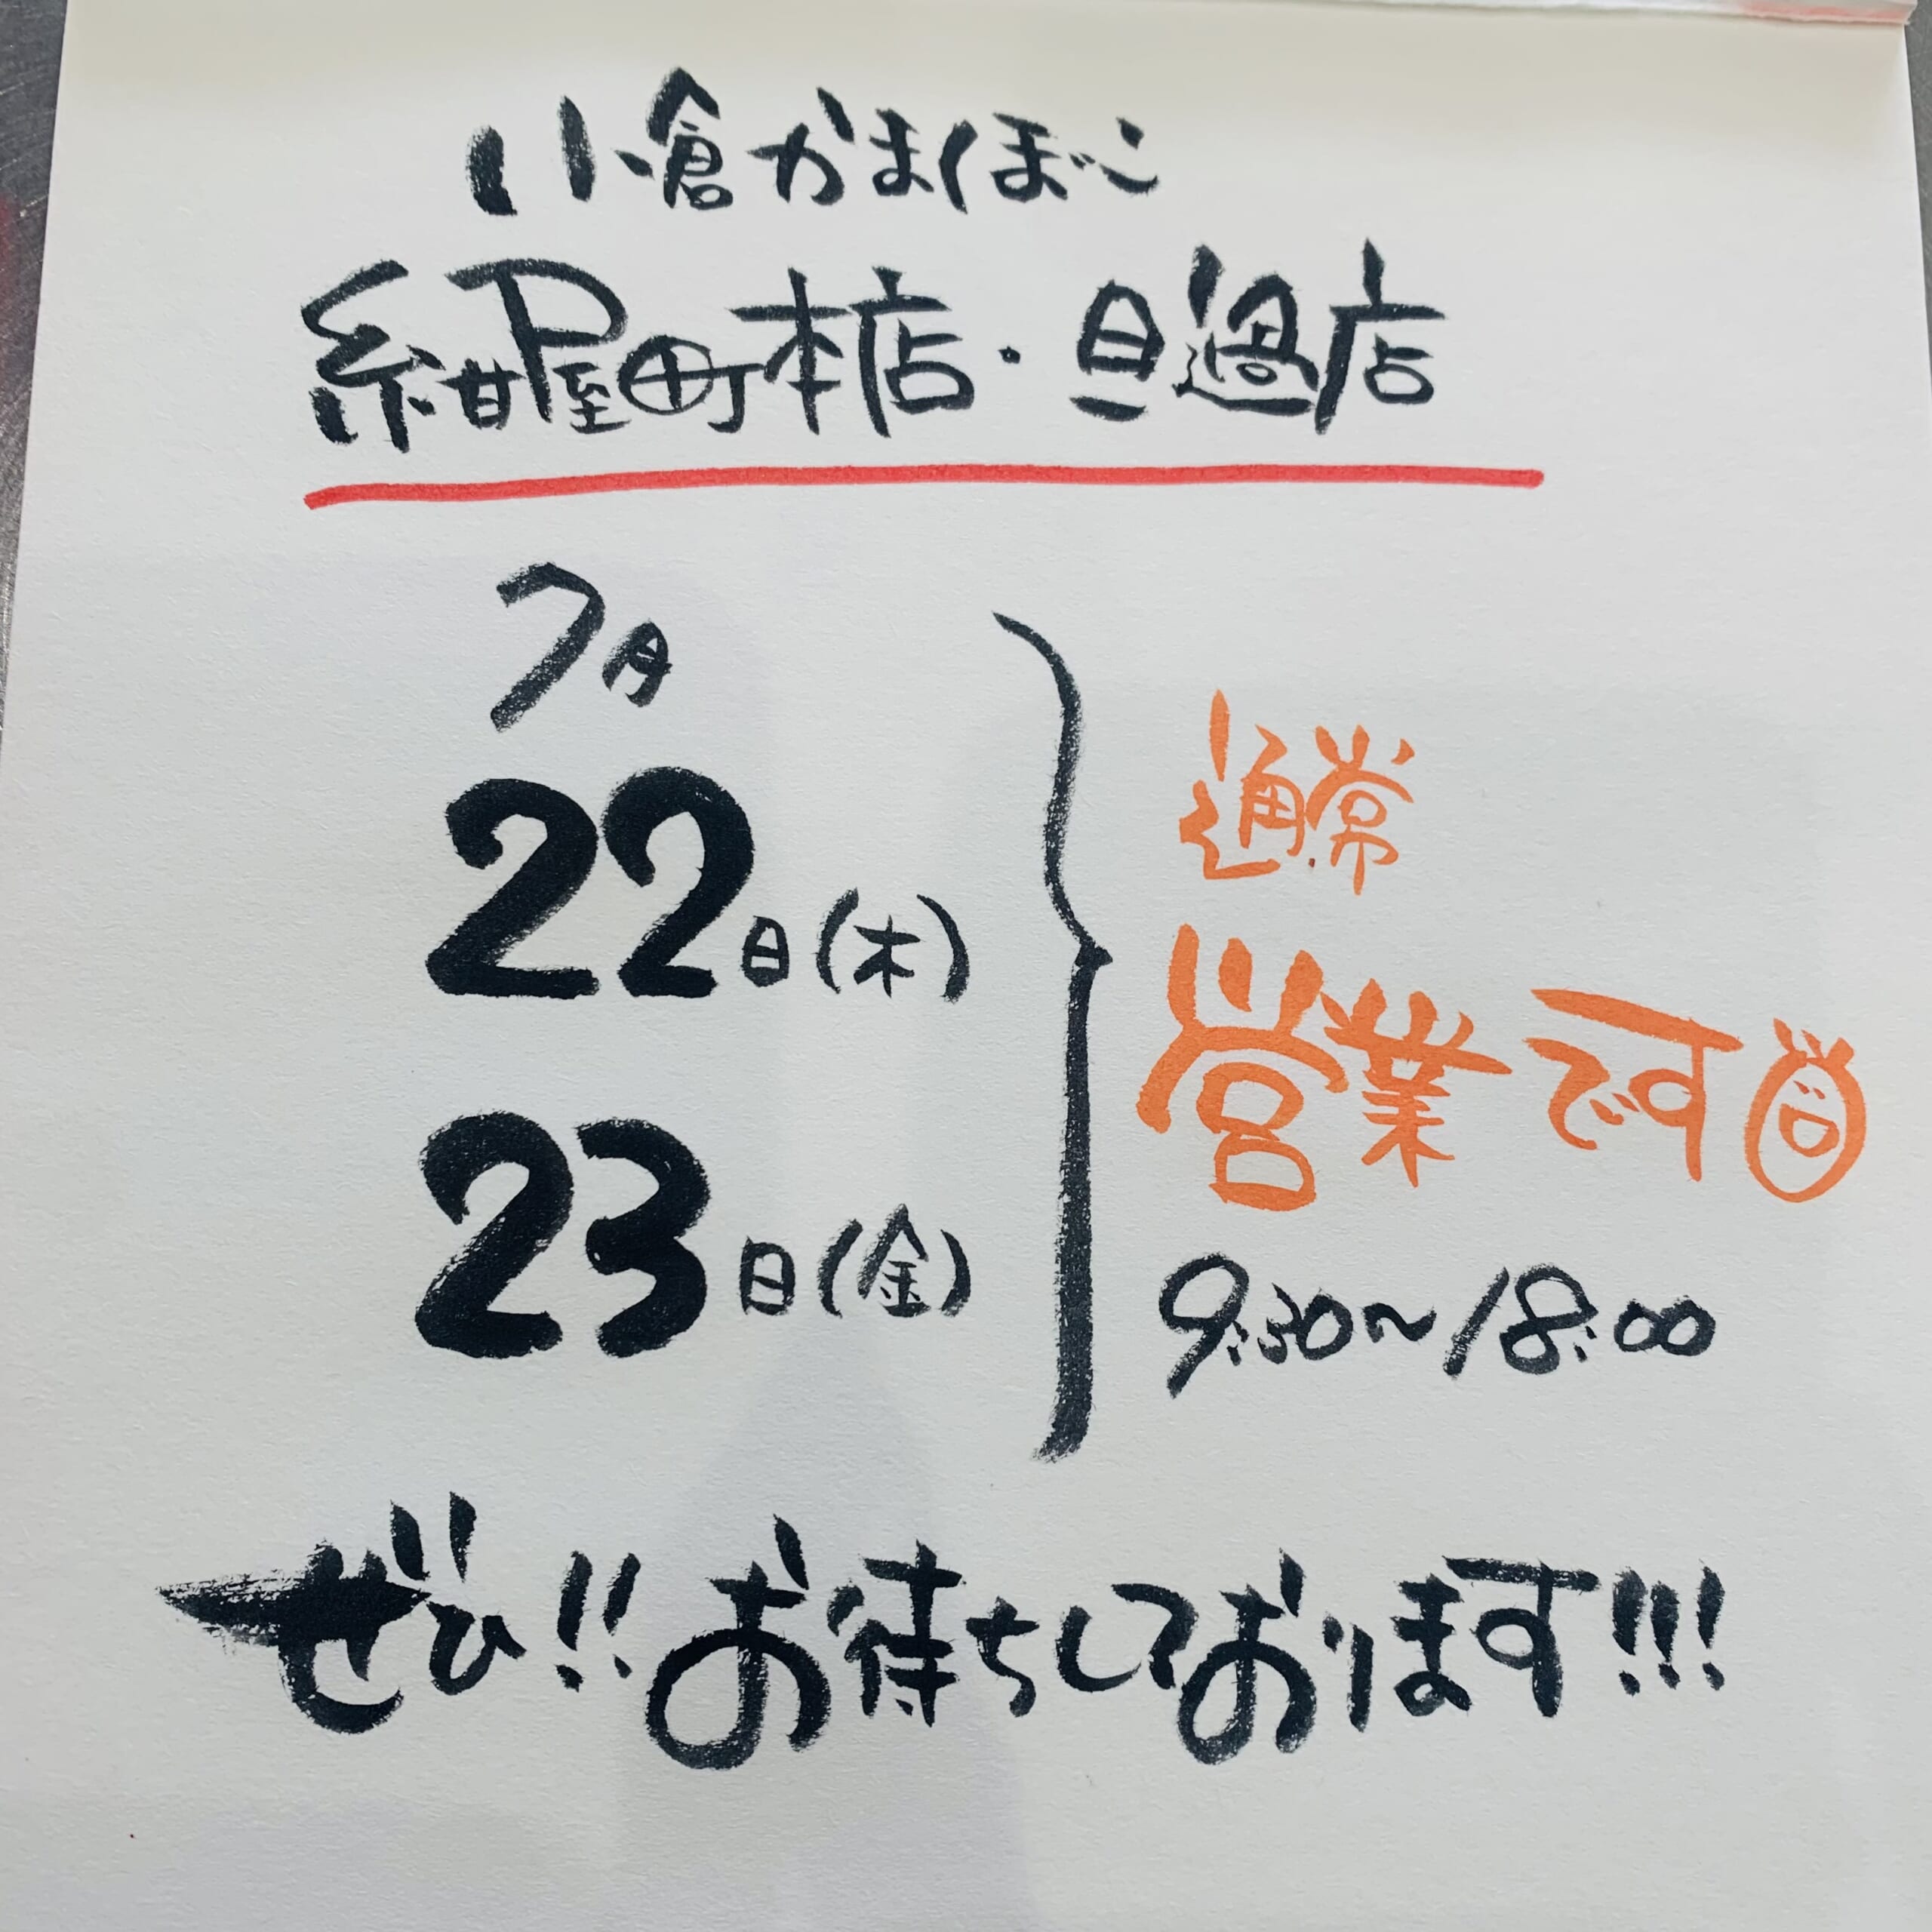 小倉かまぼこ
紺屋町本店・旦過店
7月
22日(木)
23日(金)
通常
営業です
9:30〜18:00
ぜひ!!お待ちしております!!!